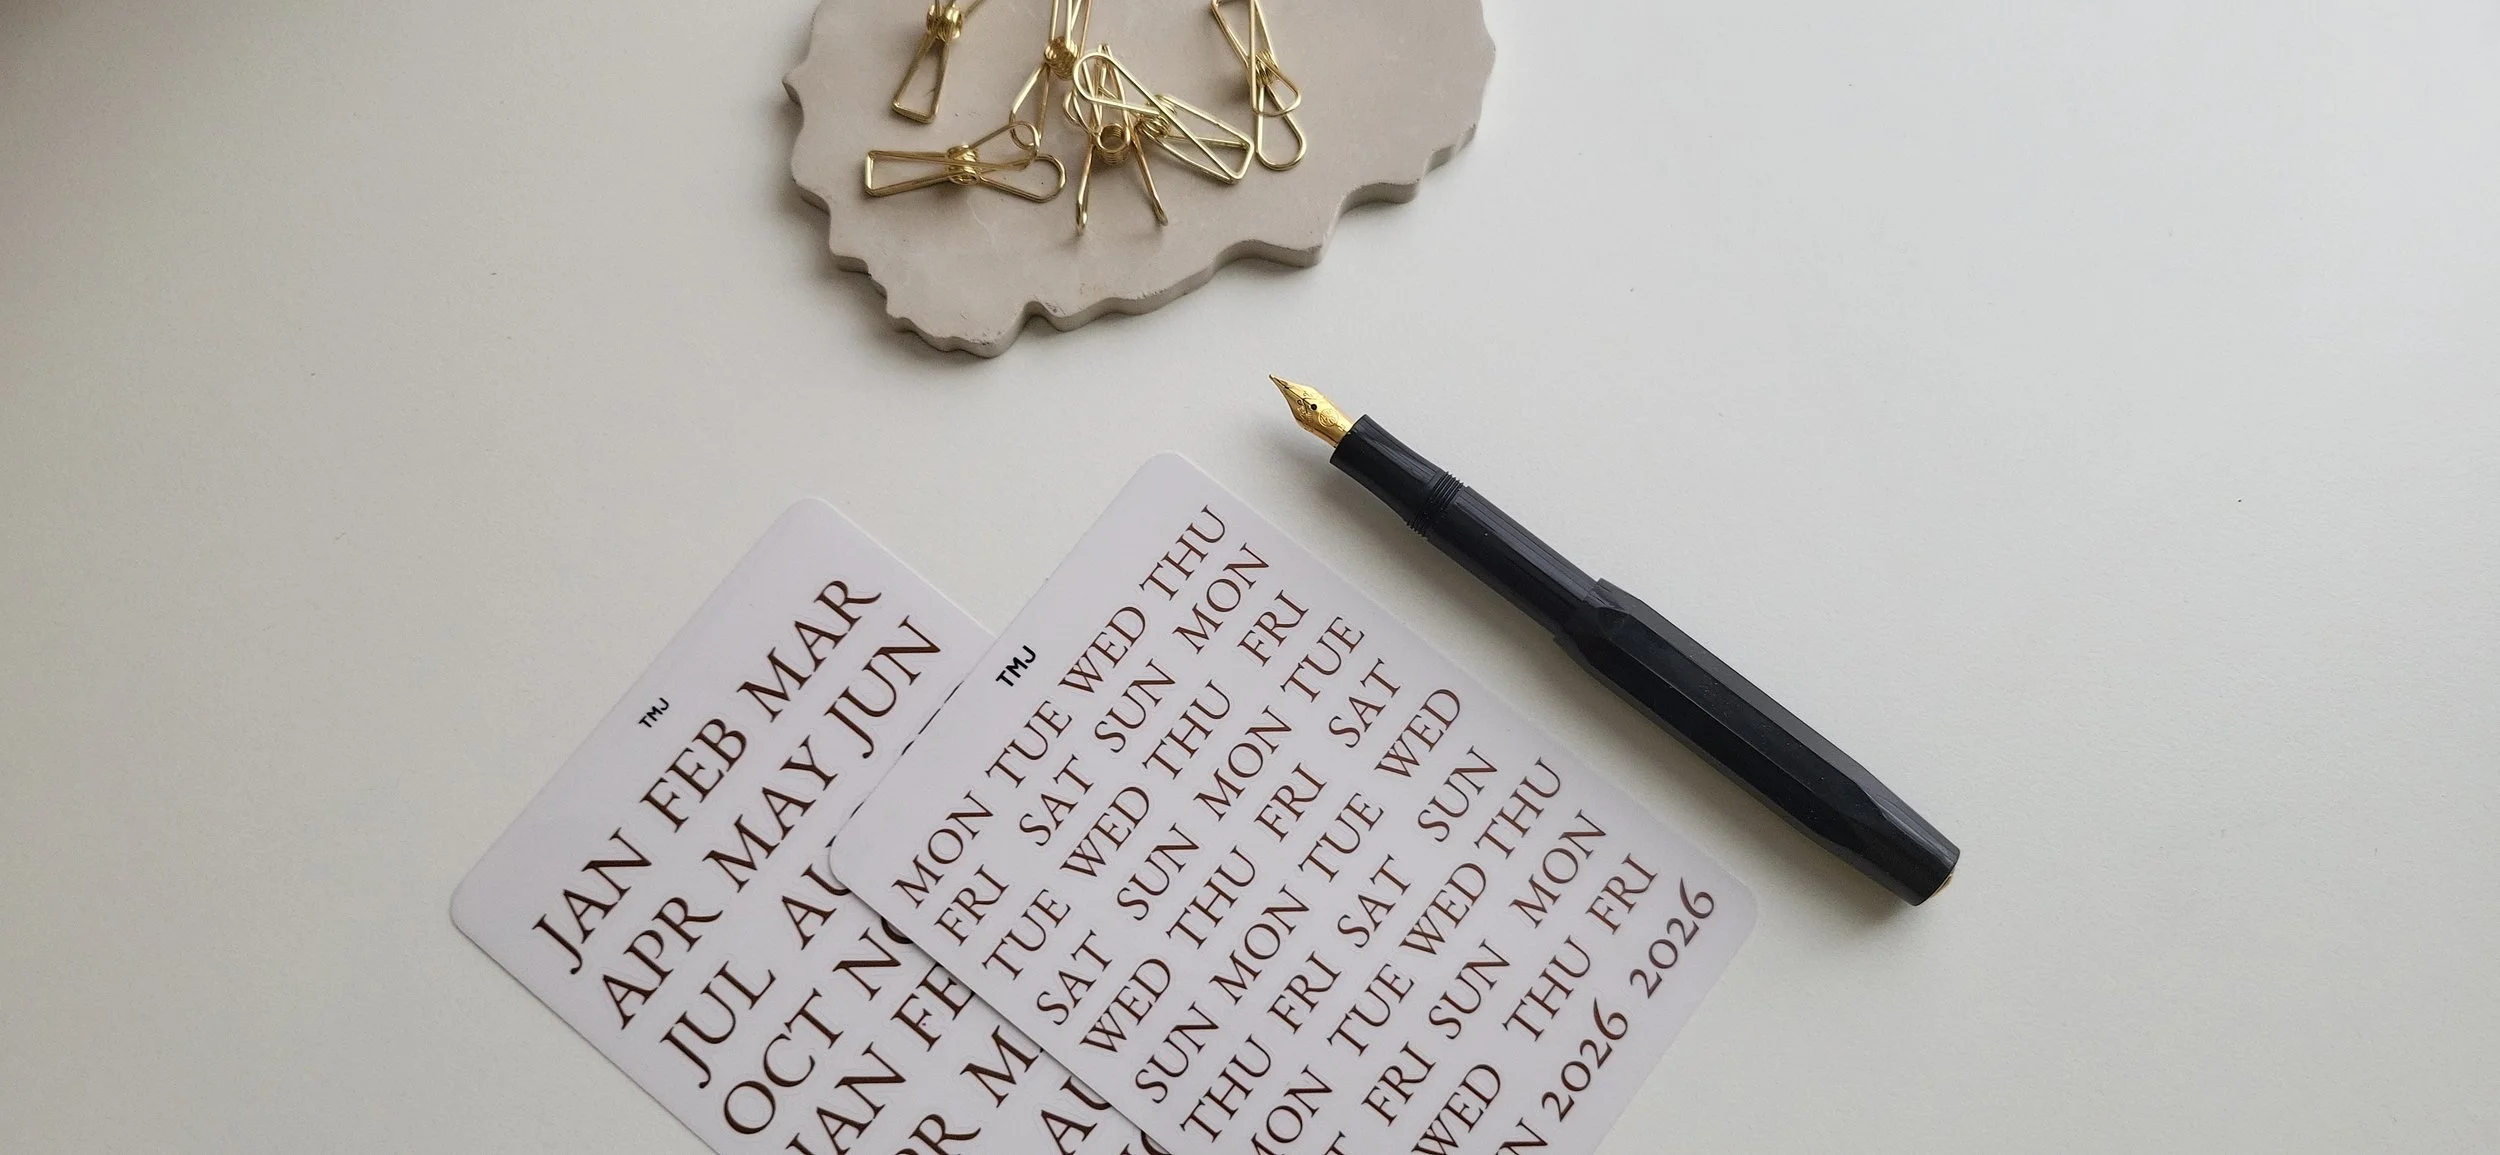 TMJ
JAN FEB MAR
APR MAY JUN
JUL
OCT
JAN
TMJ
MON TUE WED THU
FRI SAT SUN MON
TUE WED THU FRI
SAT SUN MON TUE
WED THU FRI SAT
SUN MON TUE WED
THU FRI SAT SUN
MON TUE WED THU
FRI SUN MON
WED THU FRI
2026 2026